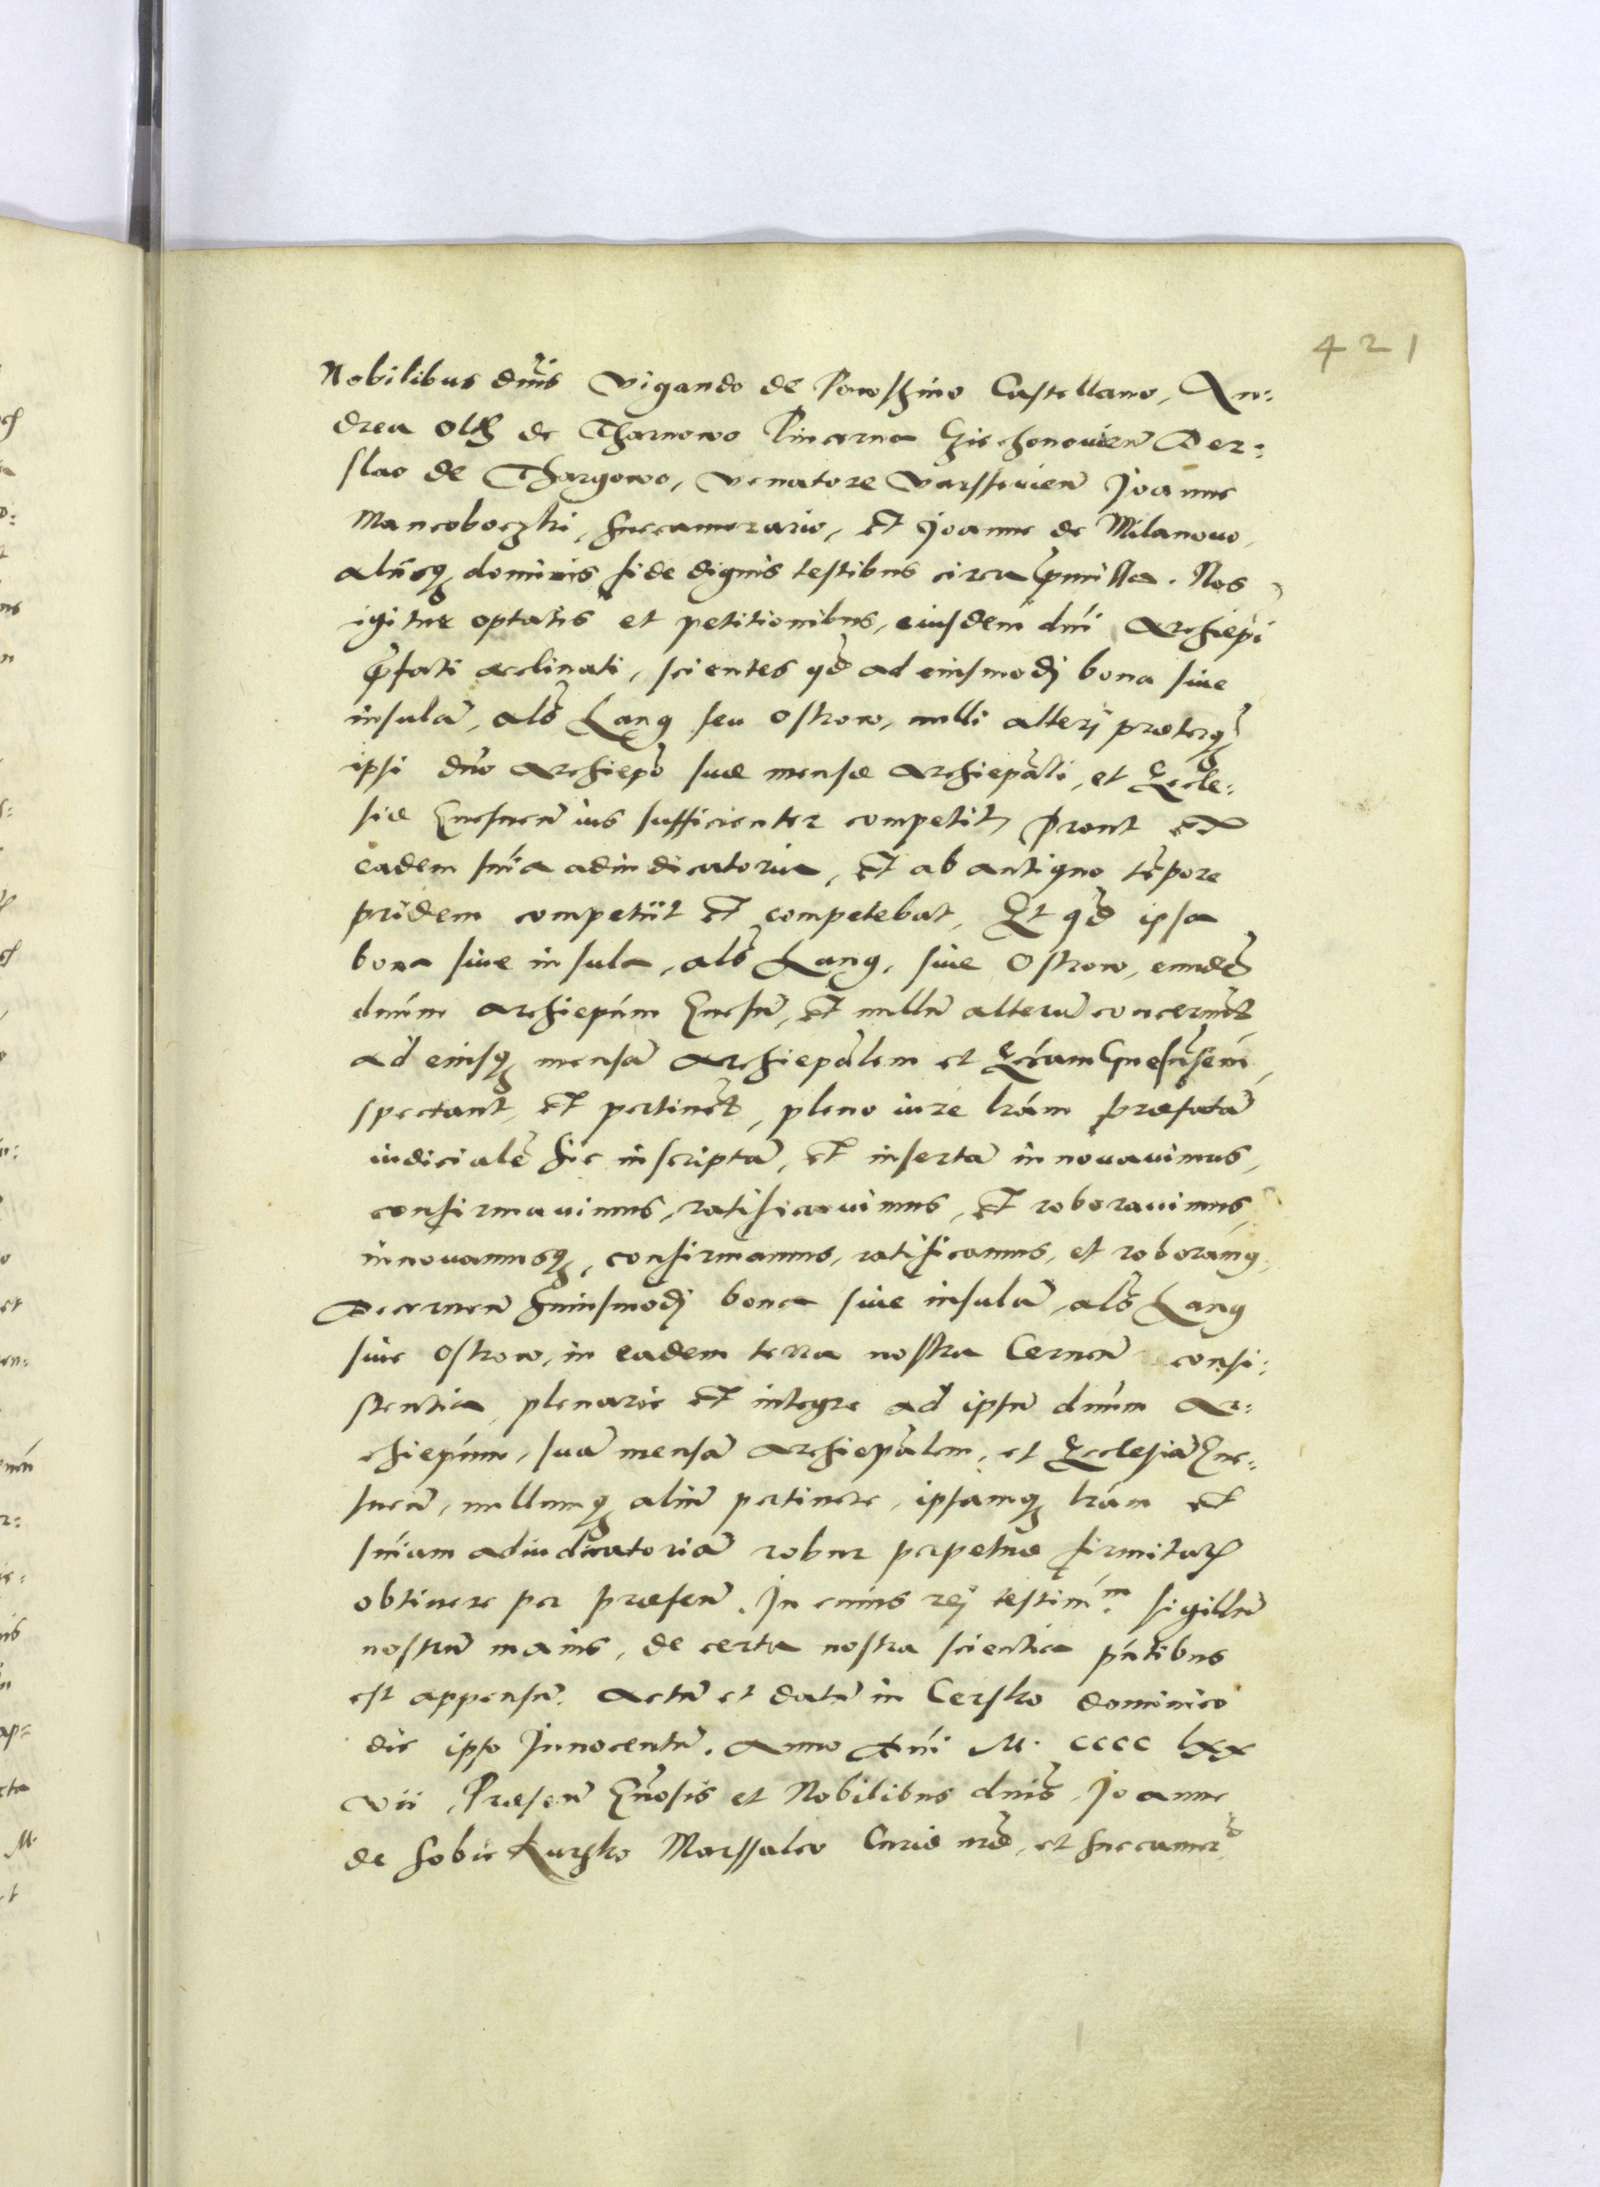 421
Nobilibus dñis Vigando de Powsszino Castellano, An:
drea Olth de Tharnowo Pincerna Cziechonovieñ Der:
slao de Thargowo, Venatore Varssovieñ Joanne
Mancoboczki, succamerario, et Joanne de Milanovo,
alijsq dominis fide dignis testibus circa pmissa. Nos
igitur optatis et petitionibus, eiusdem dni Archiepi
pfati acclinati, scientes qd ad eiusmodj bona siue
insulã, als Lang seu Ostrow, nulli alterj præterq
ipsi dno Archiepo suæ mensæ Archiepali, et Eccle:
siæ Gnesneñ ius sufficienter competit, prout et
eadem snia adiudicatoria, et ab antiquo tẽpore
pridem competiit et competebat, Et qd ipsa
bona siue insula, als Lang, siue Ostrow, eundẽ
dnum Archiepum Gnesñ, et nullũ alterũ concernũt
ad eiusq mensã Archiepalem et Ecclam Gnesñsem
spectant, et pertinẽt, pleno iure lram præfatã
iudicialẽ hic inscriptã, et insertã innovavimus,
confirmauimus, ratificauimus, et roborauimus,
innovamusq, confirmamus, ratificamus, et roboramq,
Decerneñ huiusmodj bona siue insulã, als Lang
siue Ostrow, in eadem terra nostra Cerneñ consi:
stentia, plenarie et integre ad ipsũ dnum Ar:
chiepum, suã mensã Archiepalem, et Ecclesiã Gne:
sneñ, nullumq aliũ pertinere, ipsamq lram et
sniam adiudicatoriã robur perpetuæ firmitatis
obtinere per præseñ. In cuius rej testim.m sigillũ
nostrũ maius, de certa nostra scientia pntibus
est appensũ. Actũ et datũ in Cersko dominico
die ipso Innocentũ. Anno dni M. cccc lxx
vii Præseñ Gnosis et Nobilibus dnis, Joanne
de Sobiekursko Marssalco Curiæ nræ, et succamer